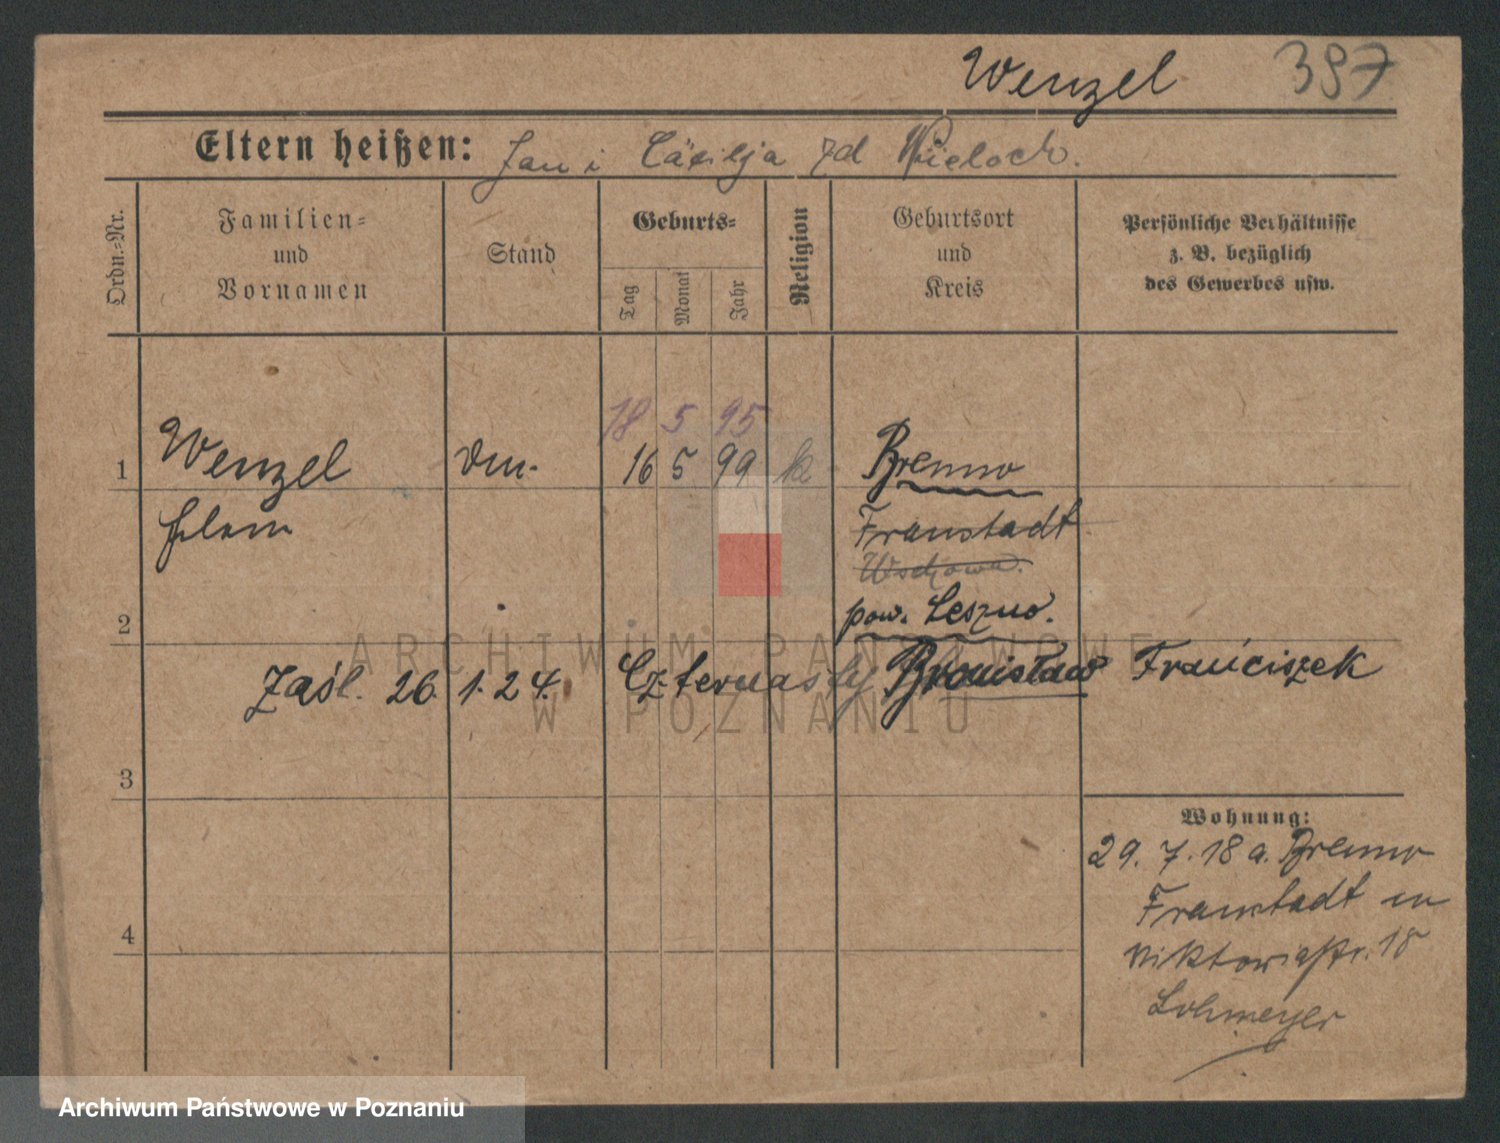 Wenzel 397
Eltern heißen: Jan i Cäcilja zd Wieloch.
Ordn.-Nr.
Familien-
und
Vornamen
Stand
Geburts-
Tag
Monat
Jahr
Religion
Geburtsort
und
Kreis
Persönliche Verhältnisse
z. B. bezüglich
des Gewerbes usw.
18 5 95
1 Wenzel 16 5 99 k Brenno
Fraustadt
Wschowa.
2 pow. Leszno.
Zaśl. 26. 1. 24. Czternasty Bronisław Franciszek
3
Wohnung:
29. 7. 18 a. Brenno
Fraustadt in
4 Viktoriastr. 18
Lohmeyer
ARCHIWUM PAŃSTWOWE
W POZNANIU
Archiwum Państwowe w Poznaniu